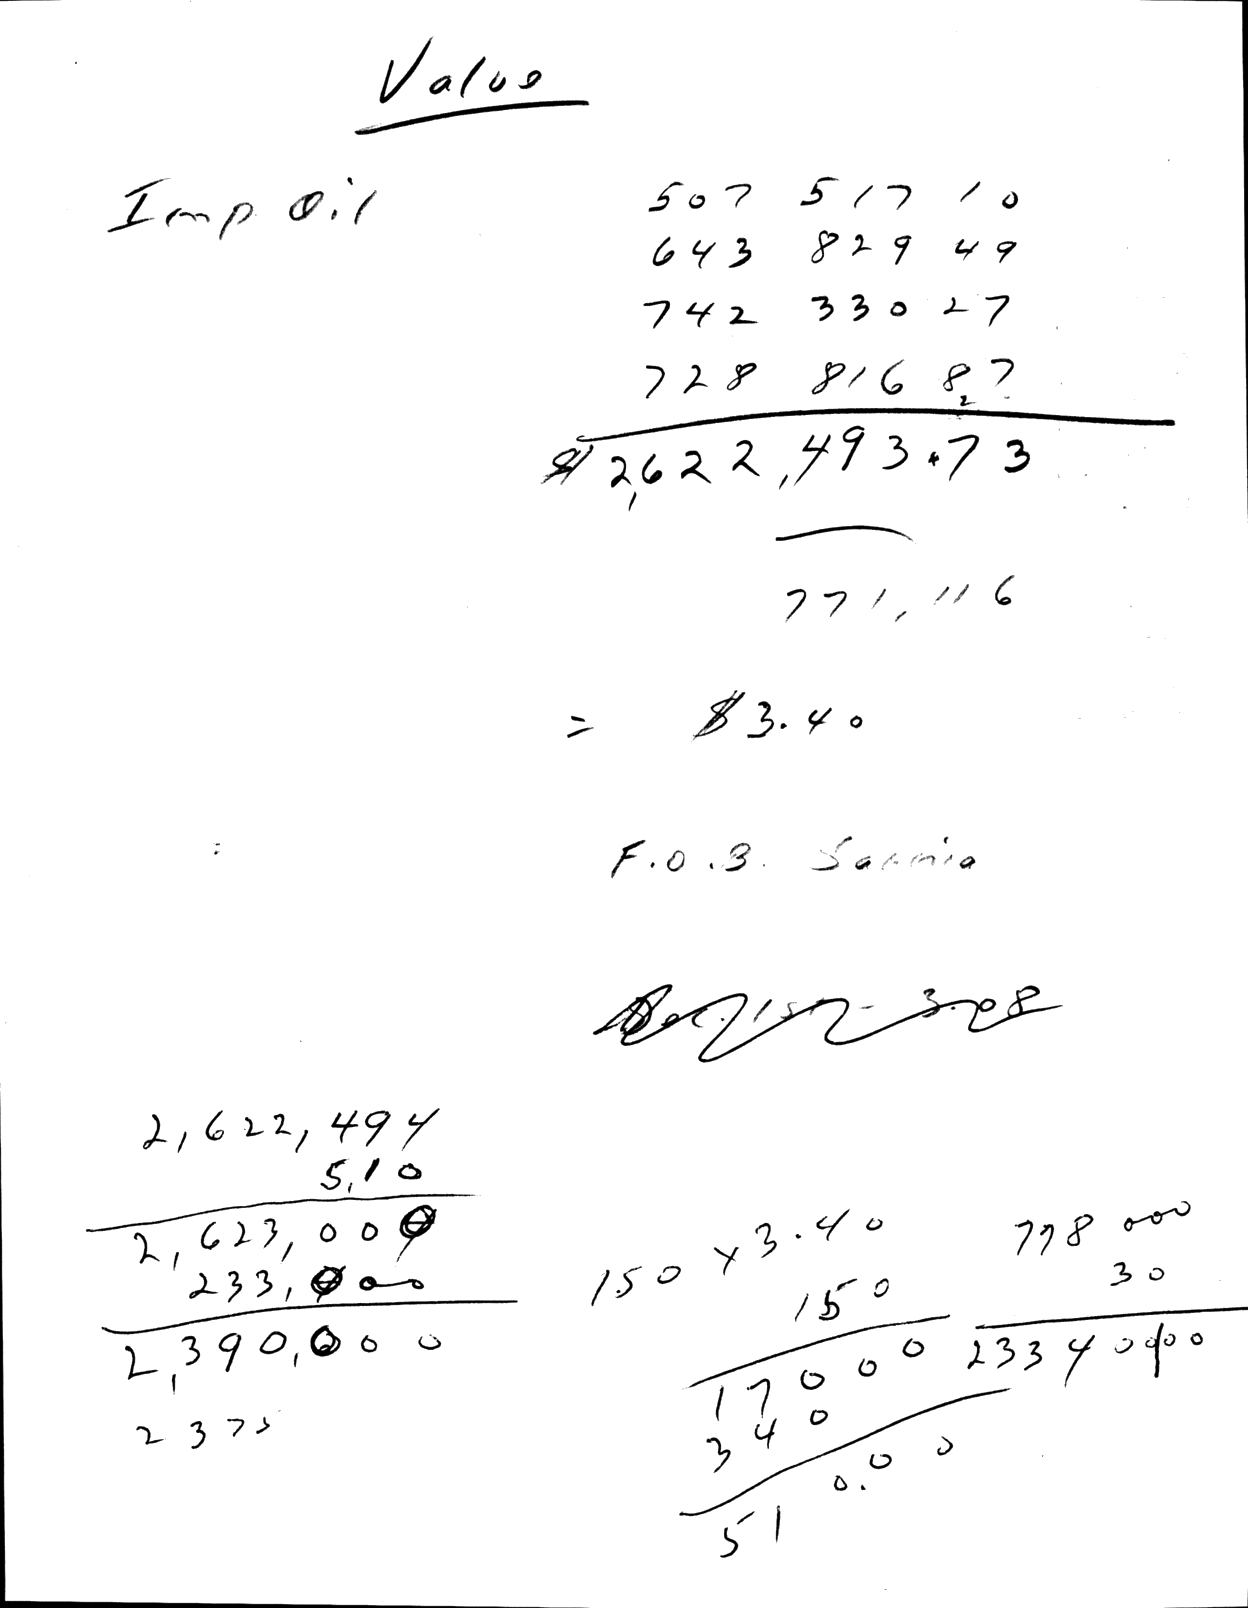 Value
Imp. Oil 507 517 10
643 829 49
742 330 27
728 816 87
2
$2,622,493.73
771,116
= $3.40
F.O.B. Sarnia
2,622,494
5,10
2,623,000
233,000
2,390,000
2375
150 x 3.40
150
17000
340
510.00
778 000
30
2334 0000